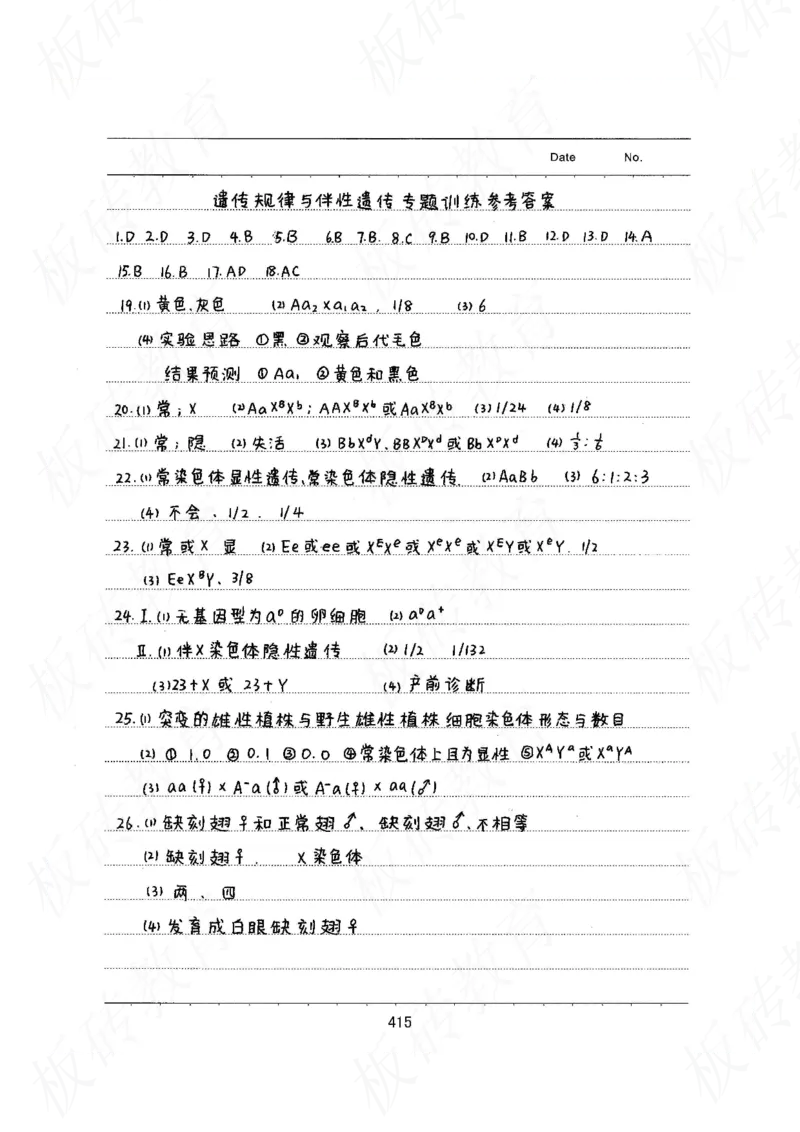 Date No.
遗传规律与伴性遗传专题训练参考答案
1.D 2.D 3.D 4.B 5.B 6.B 7.B. 8.C 9.B 10.D 11.B 12.D 13.D 14.A
15.B 16.B 17.AD 18.AC
19.(1) 黄色、灰色 (2) Aa₂×a₁a₂ , 1/8 (3) 6
(4) 实验思路 ①黑 ②观察后代毛色
结果预测 ①Aa₁ ②黄色和黑色
20.(1) 常; X (2) AaXᴮXᵇ; AAXᴮXᵇ或AaXᴮXᵇ (3) 1/24 (4) 1/8
21.(1) 常; 隐 (2) 失活 (3) BbXᵈY、BBXᴰXᵈ或BbXᴰXᵈ (4) 1/3:1/6
22.(1) 常染色体显性遗传、常染色体隐性遗传 (2) AaBb (3) 6:1:2:3
(4) 不会 、1/2 . 1/4
23.(1) 常或X 显 (2) Ee或ee或XᴱXᵉ或XᵉXᵉ或XᴱY或XᵉY. 1/2
(3) EeXᴮY、3/8
24.Ⅰ.(1) 无基因型为a⁰的卵细胞 (2) a⁰a⁺
Ⅱ.(1) 伴X染色体隐性遗传 (2) 1/2 1/132
(3) 23+X 或 23+Y (4) 产前诊断
25.(1) 突变的雄性植株与野生雄性植株 细胞染色体形态与数目
(2) ① 1.0 ② 0.1 ③ 0.0 ④常染色体上且为显性 ⑤XᴬYᵃ或XᵃYᴬ
(3) aa(♀)×A⁻a(♂)或A⁻a(♀)×aa(♂)
26.(1) 缺刻翅♀和正常翅♂、缺刻翅♂、不相等
(2) 缺刻翅♀. X染色体
(3) 两、四
(4) 发育成白眼缺刻翅♀
415
板砖教育